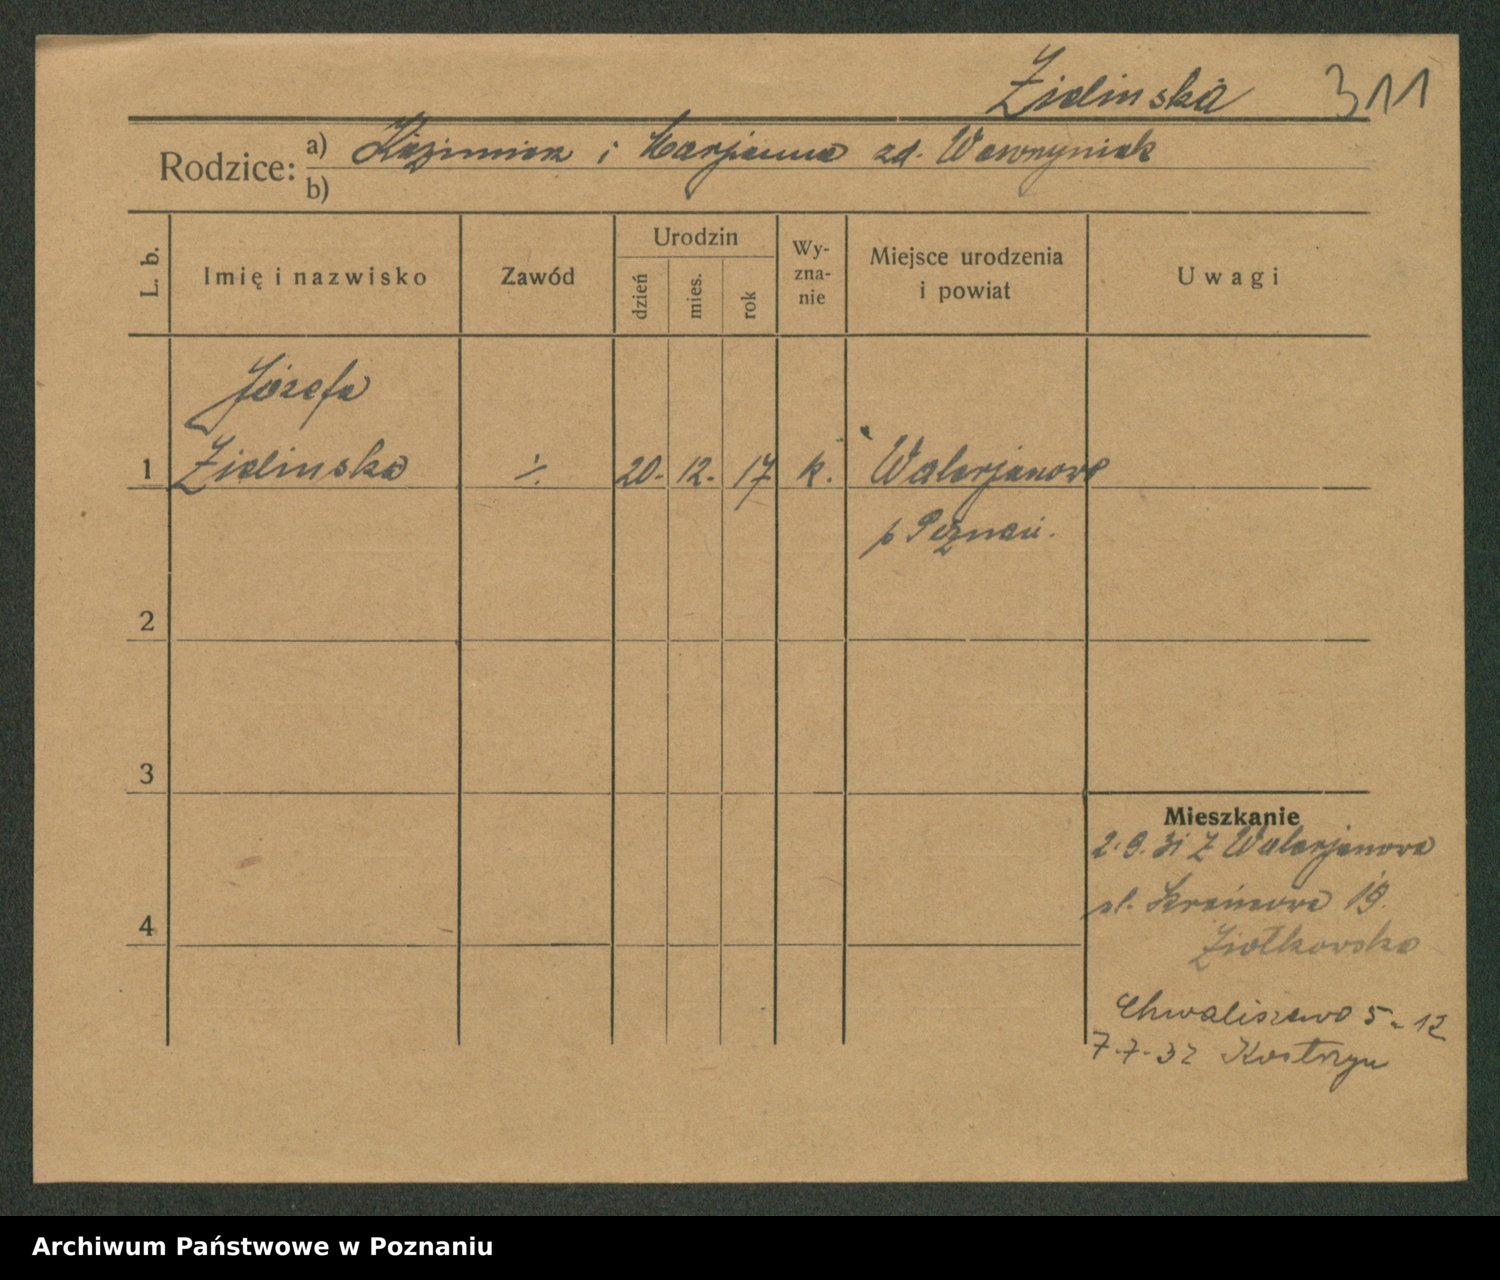 Zielinska 311
Rodzice: a) Kazimierz i Marjanna zd. Wawrzyniak
b)
L. b.
Imię i nazwisko
Zawód
Urodzin
dzień
mies.
rok
Wy-
zna-
nie
Miejsce urodzenia
i powiat
Uwagi
Józefa
1 Zielinska ./. 20. 12. 17 k. Walerjanowo
p Poznań.
2
3
4
Mieszkanie
2.9.31 Z Walerjanowa
19.
Ziołkowska
Chwaliszewo 5 - 12
7.7.32 Kostrzyn
Archiwum Państwowe w Poznaniu